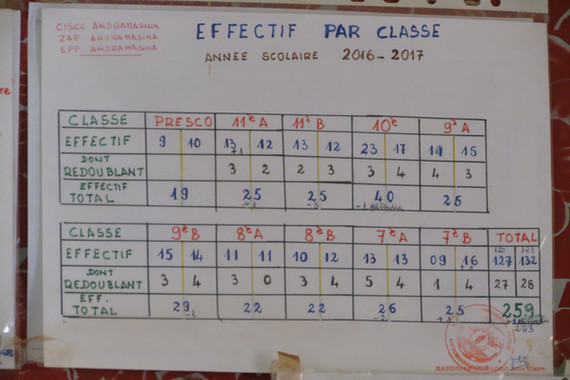 CISCO ANDRAMASINA
ZAP ANDRAMASINA
EPP ANDRAMASINA
EFFECTIF PAR CLASSE
ANNEE SCOLAIRE 2016-2017
CLASSE PRESCO 11è A 11è B 10è 9è A
EFFECTIF 9 10 13 12 13 12 23 17 11 15
DONT
REDOUBLANT 3 2 2 3 3 4 4 3
EFFECTIF
TOTAL 19 25 25 40 26
CLASSE 9è B 8è A 8è B 7è A 7è B TOTAL
EFFECTIF 15 14 11 11 10 12 13 13 09 16 127 132
DONT
REDOUBLANT 3 4 3 0 3 4 5 4 1 4 27 28
EFF.
TOTAL 29 22 22 26 25 259